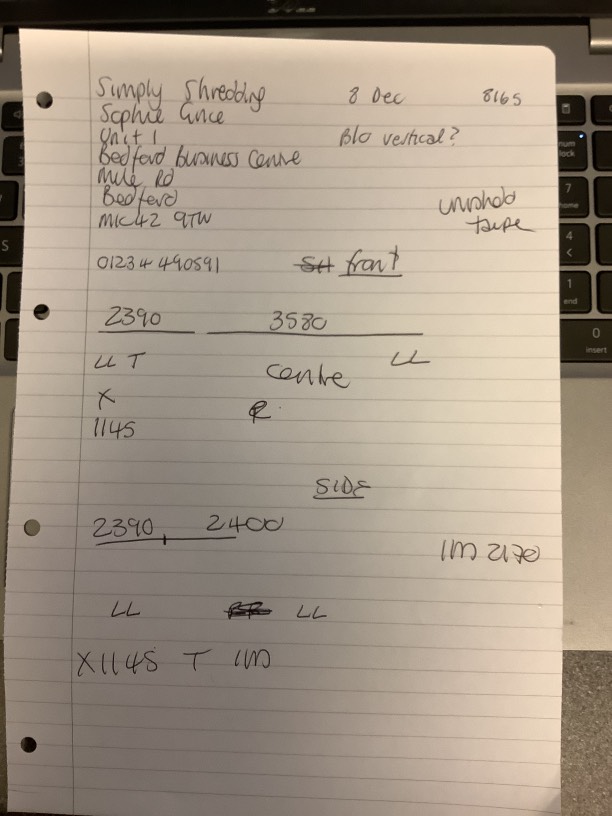 Simply Shredding 8 Dec 8165
Sophie
Unit 1 Blo vertical?
Bedford Business Centre
Mile Rd
Bedford
MK42 9TW
tape
01234 490591 front
2390 3580
LL T LL
Centre
X
1145
SIDE
2390, 2400
1M 2170
LL LL
X1145 T 1M
num lock
7 home
4
1 end
0 insert
S